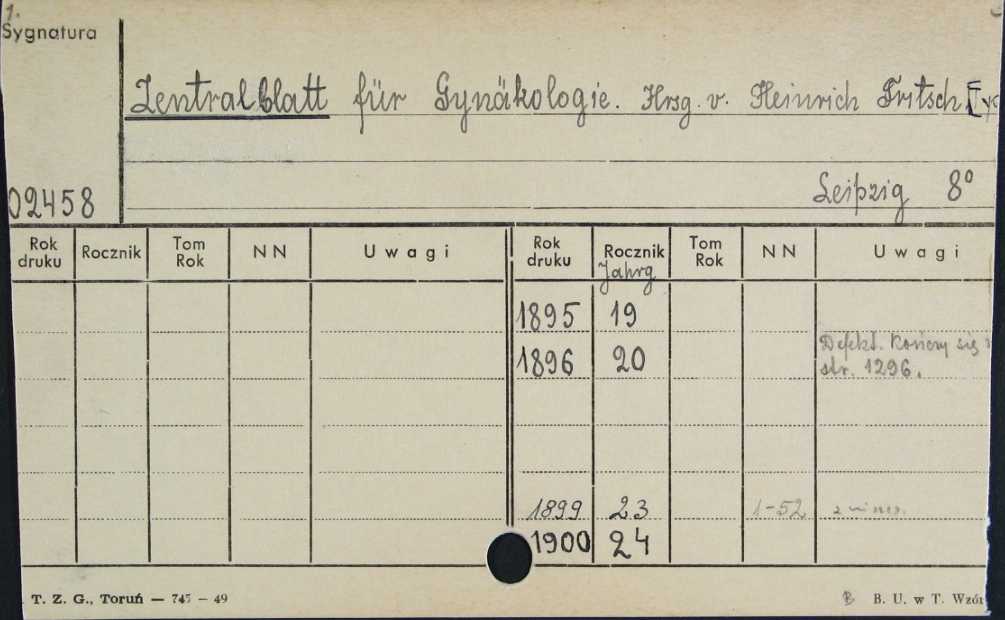 1.
Sygnatura
Zentralblatt für Gynäkologie. Hrsg. v. Heinrich Fritsch.
Leipzig 8°
02458
Rok druku Rocznik Tom Rok NN Uwagi Rok druku Rocznik Tom Rok NN Uwagi
Jahrg
1895 19
1896 20 Defekt. Kończy się
str. 1296.
1899 23 1-52
1900 24
T. Z. G., Toruń — 745 — 49 B. U. w T. Wzór